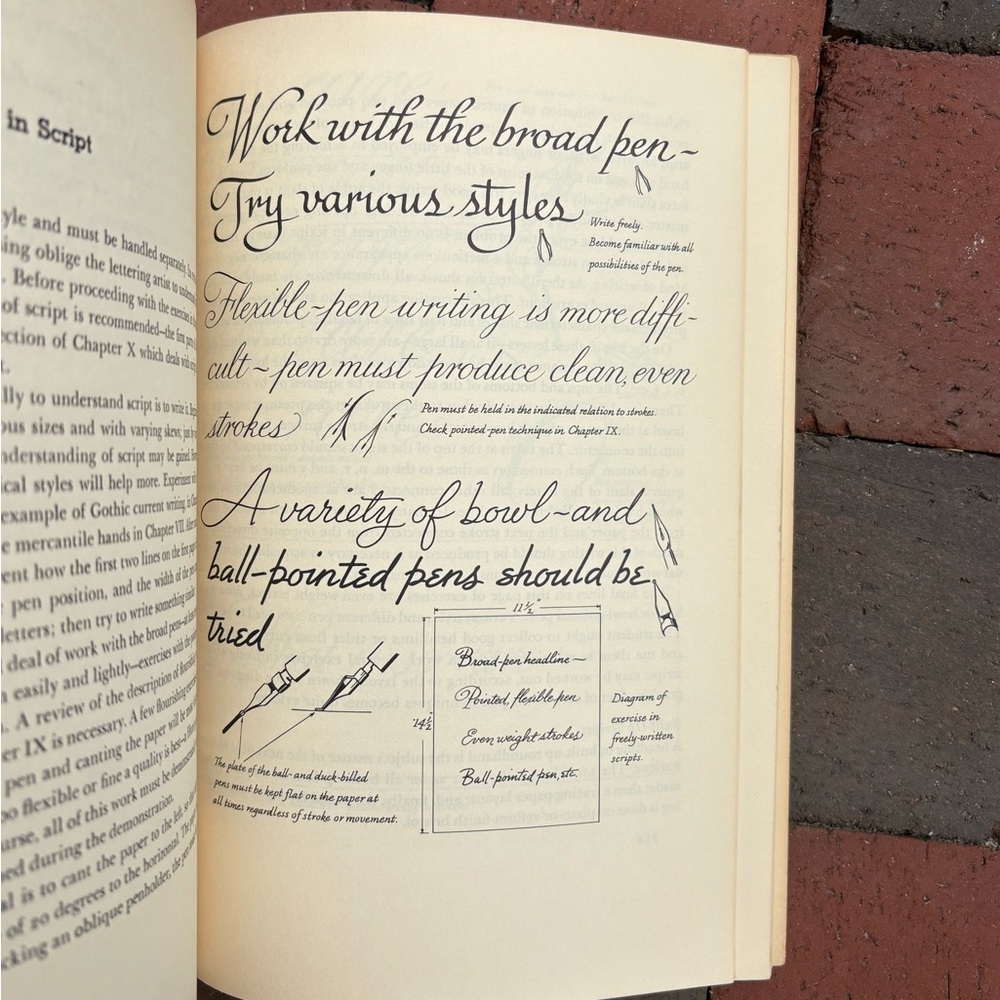 in Script
yle and must be handled separately.
sing oblige the lettering artist to
. Before proceeding with the exercises
of script is recommended—the first
ection of Chapter X which deals with
lly to understand script is to write it.
ous sizes and with varying skews; just
nderstanding of script may be gained.
cal styles will help more. Experiment
example of Gothic current writing in
e mercantile hands in Chapter VII.
ent how the first two lines on the first
pen position, and the width of the pen
letters; then try to write something
deal of work with the broad pen
easily and lightly—exercises with the
. A review of the description of
er IX is necessary. A few flourishing
pen and canting the paper will be
oo flexible or fine a quality is best
urse, all of this work must be
sed during the demonstration.
al is to cant the paper to the left,
of 20 degrees to the horizontal. The
cking an oblique penholder, the pen
Work with the broad pen~
Try various styles
Write freely.
Become familiar with all
possibilities of the pen.
Flexible~pen writing is more diffi~
cult ~ pen must produce clean, even
strokes
Pen must be held in the indicated relation to strokes.
Check pointed-pen technique in Chapter IX.
A variety of bowl~and
ball-pointed pens should be
tried
11½"
14½"
Broad-pen headline—
Pointed, flexible pen
Even weight strokes
Ball-pointed pen, etc.
Diagram of
exercise in
freely-written
scripts.
The plate of the ball- and duck-billed
pens must be kept flat on the paper at
all times regardless of stroke or movement.